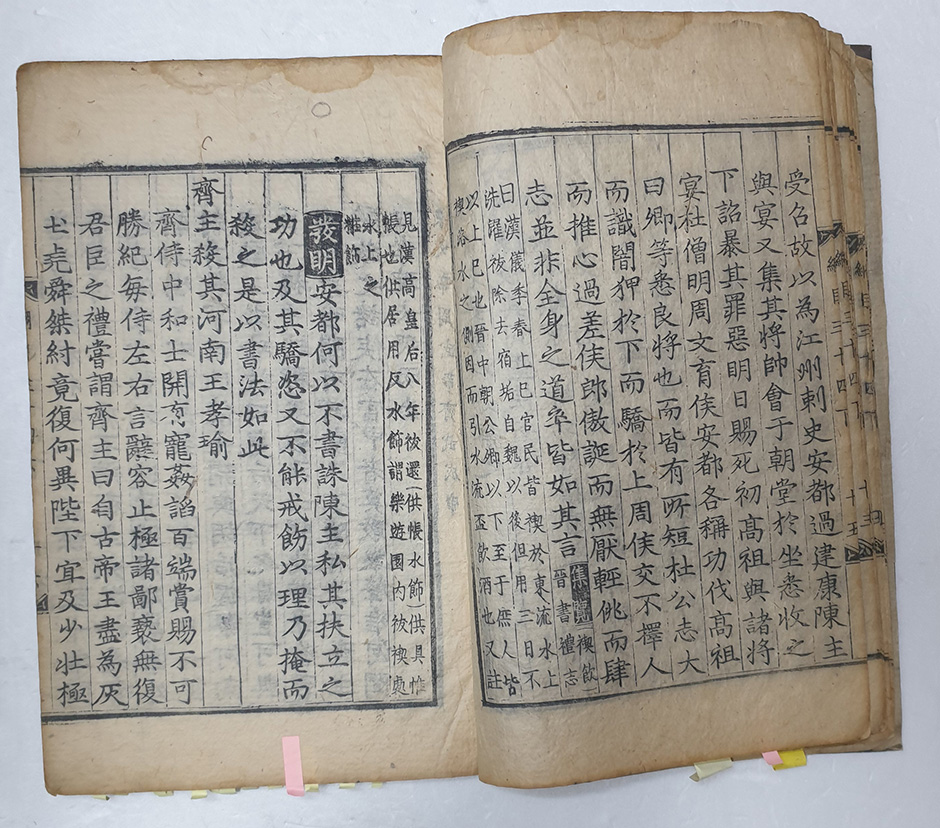 綱目三十四下
十五
受召故以為江州刺史安都過建康陳主
與宴又集其將帥會于朝堂於坐悉收之
下詔暴其罪惡明日賜死初髙祖與諸將
宴杜僧明周文育侯安都各稱功伐髙祖
曰卿等悉良將也而皆有所短杜公志大
而識闇狎於下而驕於上周侯交不擇人
而推心過差侯郎傲誕而無厭輕佻而肆
志並非全身之道卒皆如其言集覽禊飲
晉書禮志
曰漢儀季春上巳官民皆禊於東流水上
洗濯祓除去宿垢自魏以後但用三日不
以上巳也晉中朝公卿以下至于庶人皆
禊洛水之側因而引水流盃飲酒也又註
見漢高皇后八年祓還供帳水飾供具帷
帳也供居用反水飾謂樂遊園内祓禊處
水上之
雜飾
發明安都何以不書誅陳主私其扶立之
功也及其驕恣又不能戒飭以理乃掩而
殺之是以書法如此
齊主殺其河南王孝瑜
齊侍中和士開有寵姦諂百端賞賜不可
勝紀每侍左右言辭容止極諸鄙褻無復
君臣之禮嘗謂齊主曰自古帝王盡為灰
土堯舜桀紂竟復何異陛下宜及少壯極